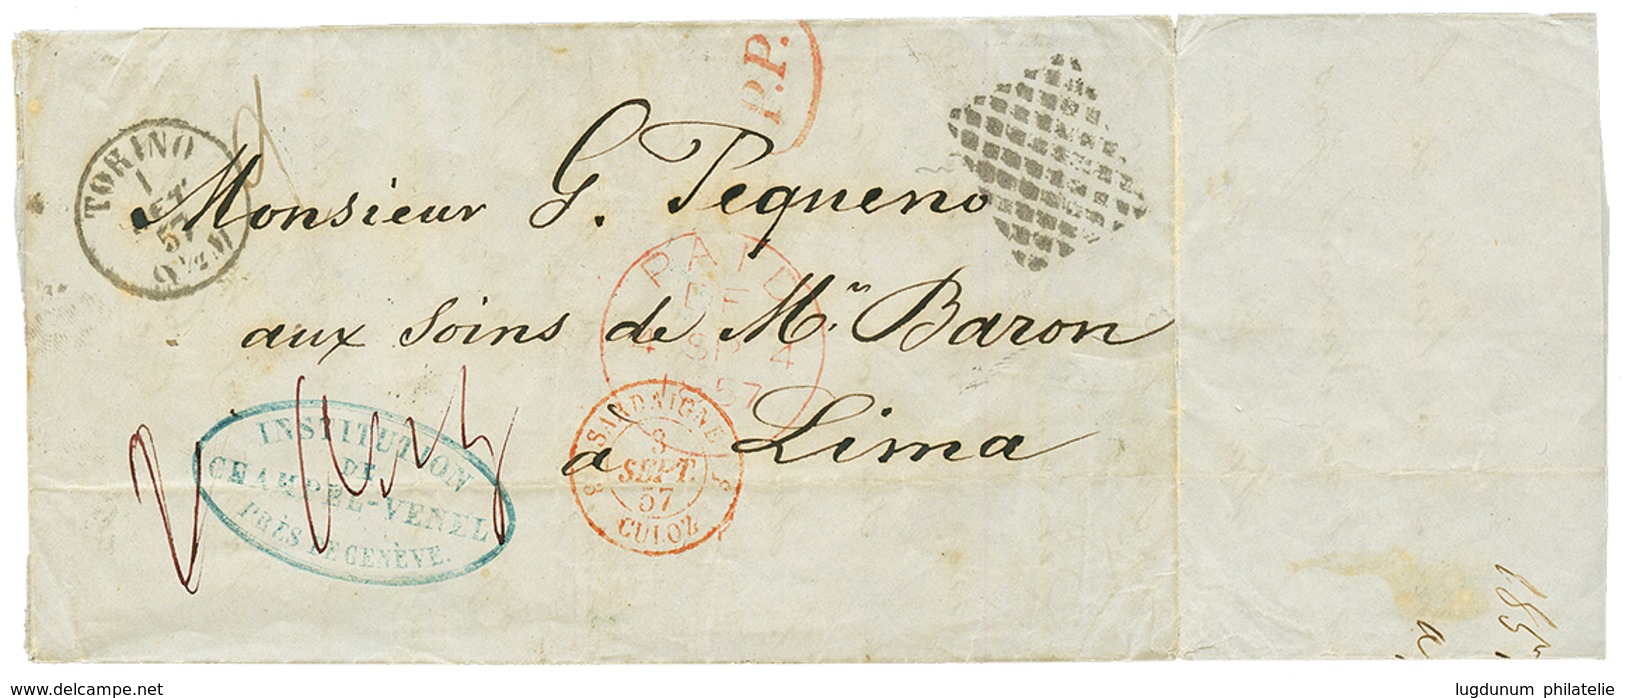 P.P.
TORINO
1
SET
57
9½M
Monsieur G. Pequeno
PAID
4 SP 4
57
aux soins de Mr. Baron
à Lima
SARDAIGNE
3
SEPT.
57
CULOZ
INSTITUTION
DE
CHAMPEL-VENEL
PRÈS DE GENÈVE.
delcampe.net
lugdunum philatelie